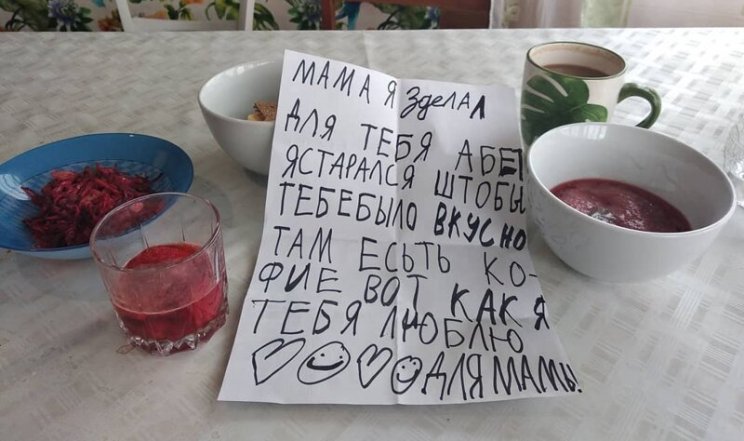 МАМА Я ЗДЕЛАЛ
ДЛЯ ТЕБЯ АБЕТ
ЯСТАРАЛСЯ ШТОБЫ
ТЕБЕБЫЛО ВКУСНО
ТАМ ЕСЬТЬ КО-
ФИЕ ВОТ КАК Я
ТЕБЯ ЛЮБЛЮ
ДЛЯ МАМЫ!